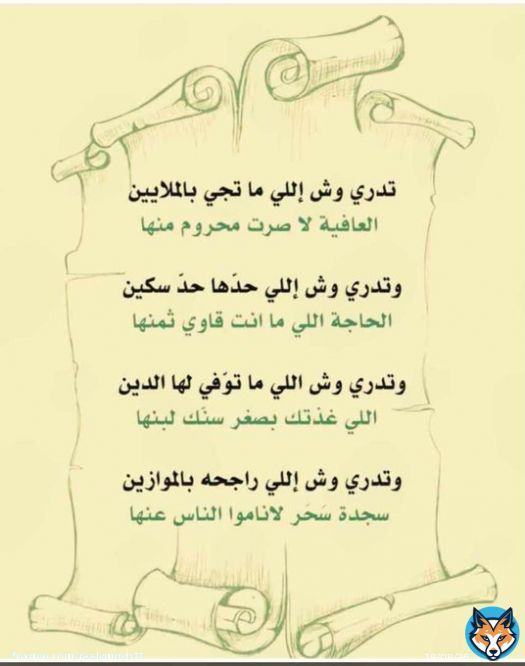 تدري وش إللي ما تجي بالملايين
العافية لا صرت محروم منها
وتدري وش إللي حدّها حدّ سكين
الحاجة اللي ما انت قاوي ثمنها
وتدري وش اللي ما توّفي لها الدين
اللي غذتك بصغر سنّك لبنها
وتدري وش إللي راجحه بالموازين
سجدة سَحَر لاناموا الناس عنها